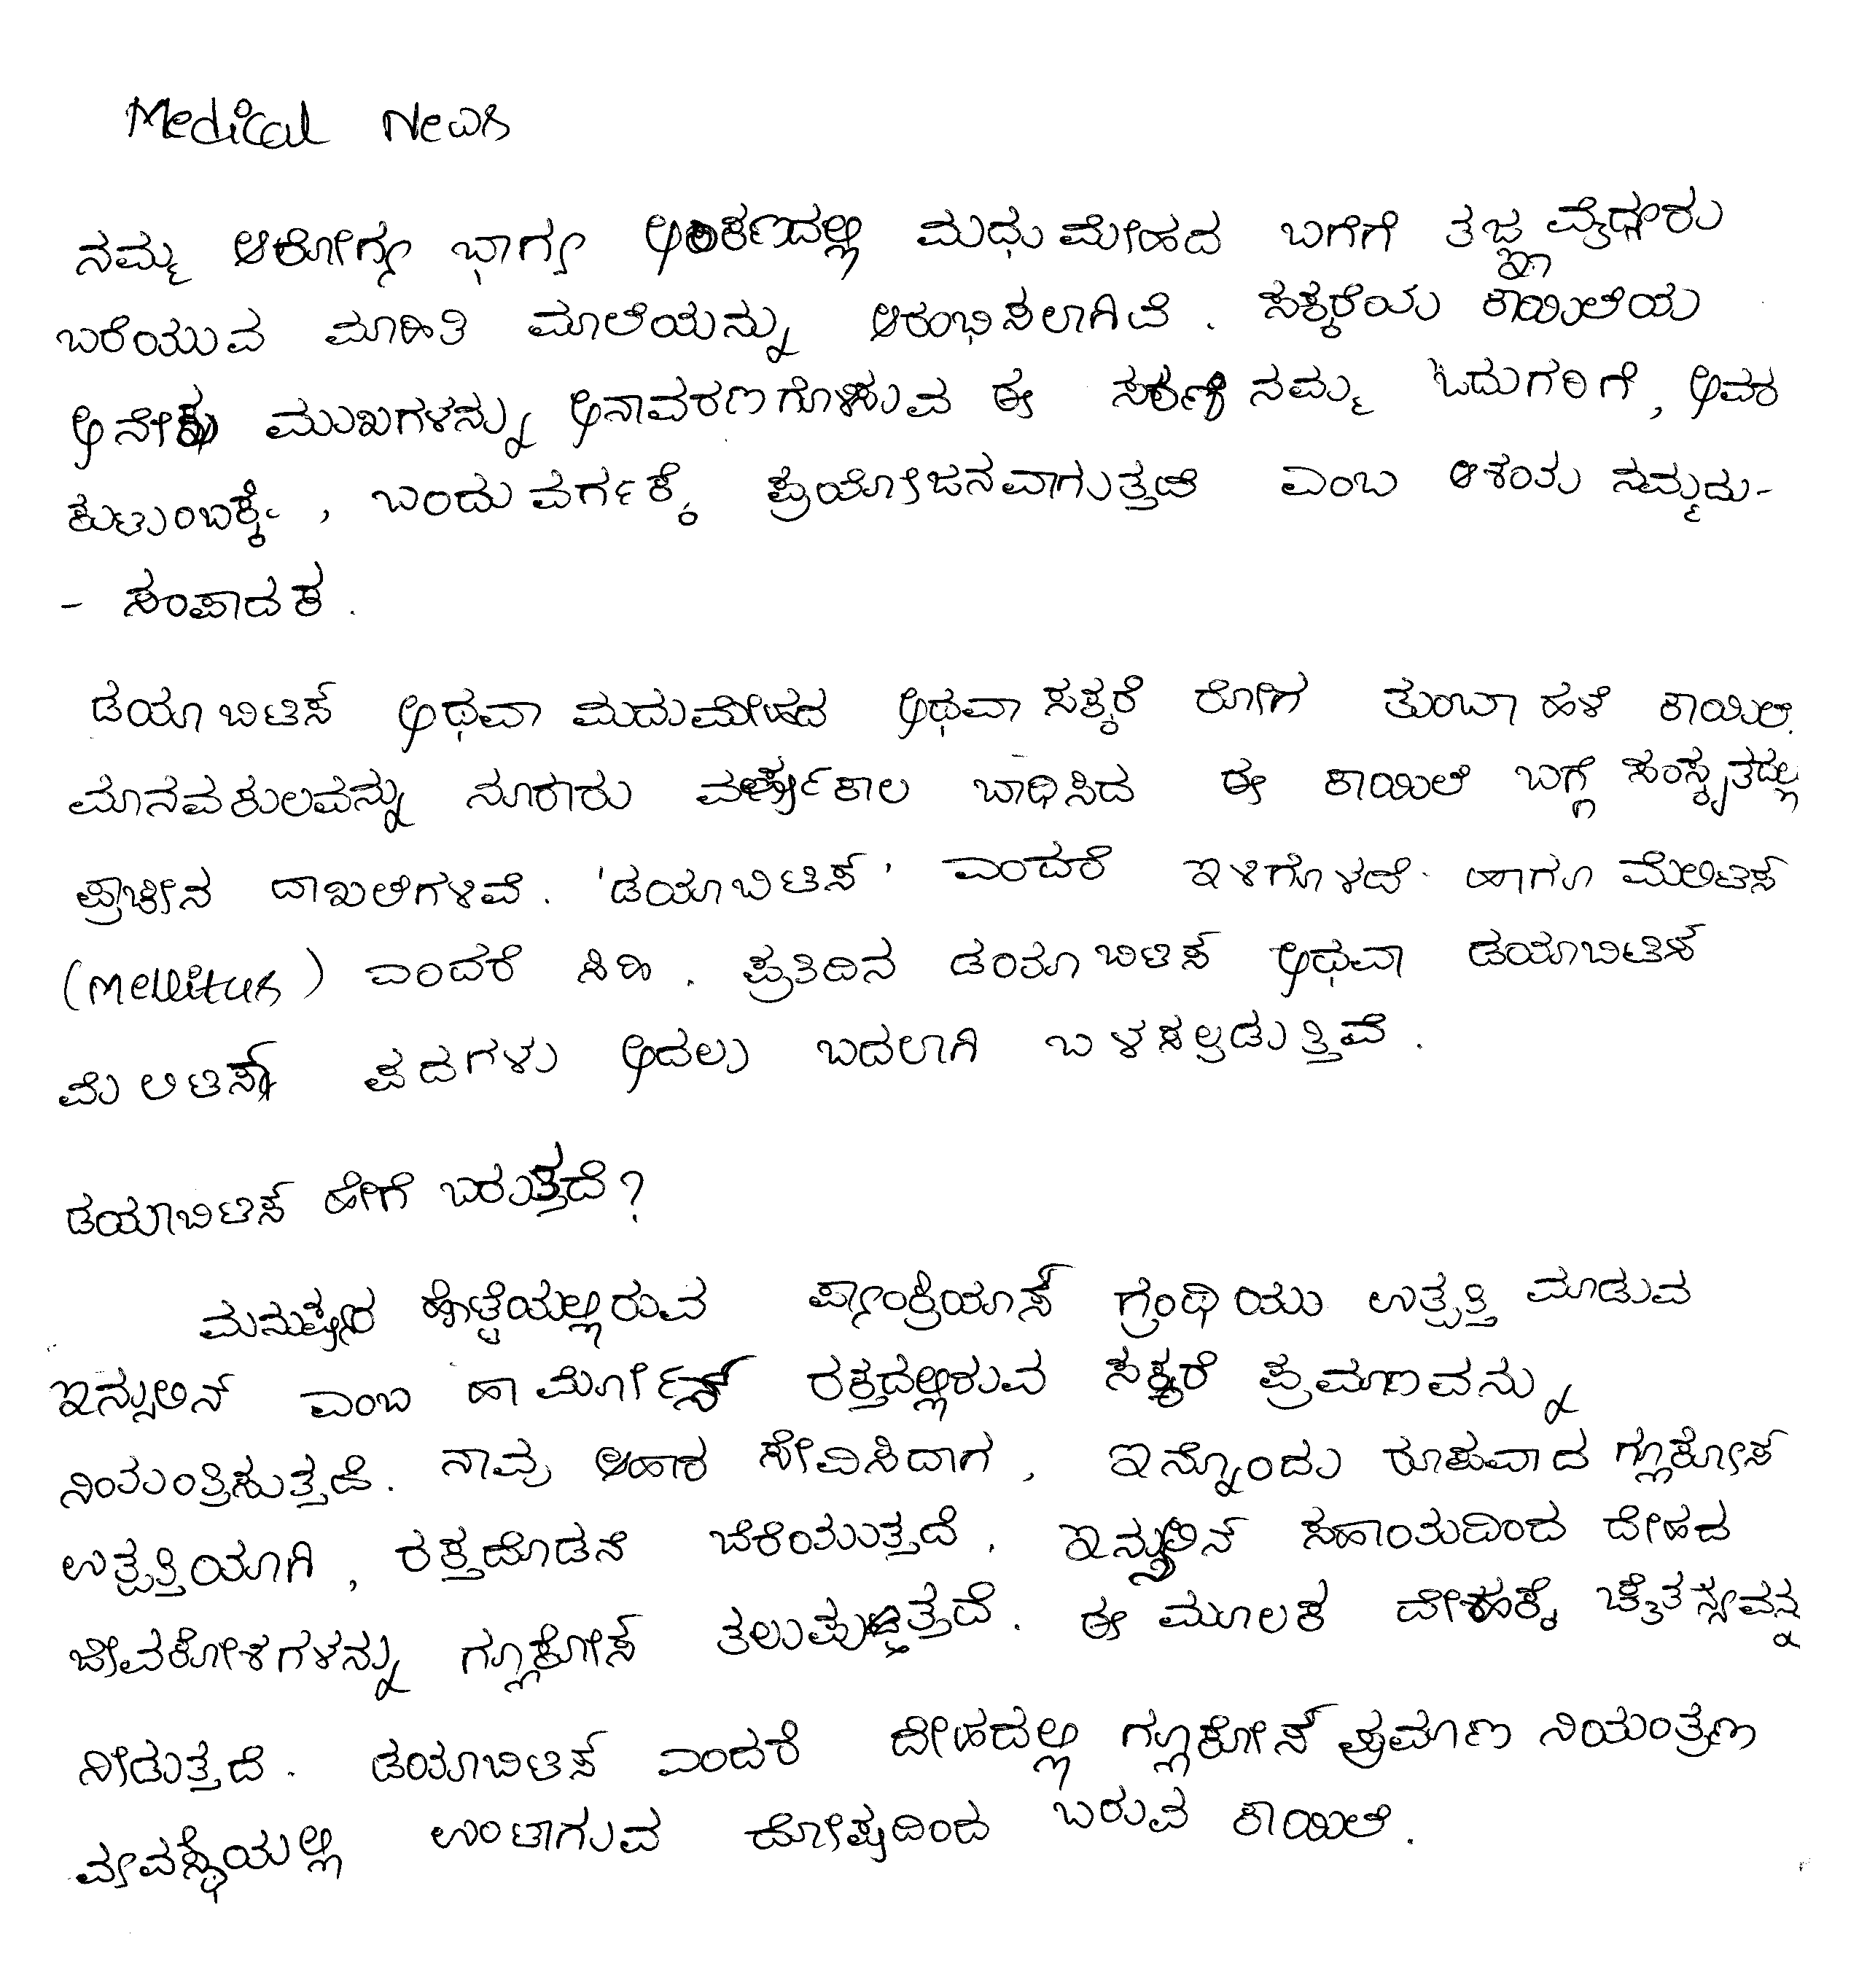 Medical News
ನಮ್ಮ ಆರೋಗ್ಯ ಭಾಗ್ಯ ಅಂಕಣದಲ್ಲಿ ಮಧುಮೇಹದ ಬಗೆಗೆ ತಜ್ಞ ವೈದ್ಯರು
ಬರೆಯುವ ಮಾಹಿತಿ ಮಾಲೆಯನ್ನು ಆರಂಭಿಸಲಾಗಿದೆ. ಸಕ್ಕರೆಯ ಕಾಯಿಲೆಯ
ಅನೇಕ ಮುಖಗಳನ್ನು ಅನಾವರಣಗೊಳಿಸುವ ಈ ಸರಣಿ ನಮ್ಮ ಓದುಗರಿಗೆ, ಅವರ
ಕುಟುಂಬಕ್ಕೆ, ಬಂದುವರ್ಗಕ್ಕೆ ಪ್ರಯೋಜನವಾಗುತ್ತದೆ ಎಂಬ ಆಶಯ ನಮ್ಮದು-
- ಸಂಪಾದಕ.
ಡಯಾಬಿಟಿಸ್ ಅಥವಾ ಮದುಮೇಹದ ಅಥವಾ ಸಕ್ಕರೆ ರೋಗ ತುಂಬಾ ಹಳೆ ಕಾಯಿಲೆ.
ಮಾನವಕುಲವನ್ನು ನೂರಾರು ವರ್ಷಕಾಲ ಬಾಧಿಸಿದ ಈ ಕಾಯಿಲೆ ಬಗ್ಗೆ ಸಂಸ್ಕೃತದಲ್ಲಿ
ಪ್ರಾಚೀನ ದಾಖಲೆಗಳಿವೆ. 'ಡಯಾಬಿಟಿಸ್' ಎಂದರೆ ಇಳಿಗೊಳದೆ. ಹಾಗೂ ಮೆಲಿಟಿಸ್
(mellitus) ಎಂದರೆ ಸಿಹಿ. ಪ್ರತಿದಿನ ಡಯಾಬಿಟಿಸ್ ಅಥವಾ ಡಯಾಬಿಟಿಸ್
ಮೆಲಿಟಿಸ್ ಪದಗಳು ಅದಲು ಬದಲಾಗಿ ಬಳಸಲ್ಪಡುತ್ತಿವೆ.
ಡಯಾಬಿಟಿಸ್ ಹೇಗೆ ಬರುತ್ತದೆ?
ಮನುಷ್ಯರ ಹೊಟ್ಟೆಯಲ್ಲಿರುವ ಪ್ಯಾಂಕ್ರಿಯಾಸ್ ಗ್ರಂಥಿಯು ಉತ್ಪತ್ತಿ ಮಾಡುವ
ಇನ್ಸುಲಿನ್ ಎಂಬ ಹಾರ್ಮೋನ್ ರಕ್ತದಲ್ಲಿರುವ ಸಕ್ಕರೆ ಪ್ರಮಾಣವನ್ನು
ನಿಯಂತ್ರಿಸುತ್ತದೆ. ನಾವು ಆಹಾರ ಸೇವಿಸಿದಾಗ, ಇನ್ನೊಂದು ರೂಪವಾದ ಗ್ಲೂಕೋಸ್
ಉತ್ಪತ್ತಿಯಾಗಿ, ರಕ್ತದೊಡನೆ ಬೆರೆಯುತ್ತದೆ. ಇನ್ಸುಲಿನ್ ಸಹಾಯದಿಂದ ದೇಹದ
ಜೀವಕೋಶಗಳನ್ನು ಗ್ಲೂಕೋಸ್ ತಲುಪುತ್ತದೆ. ಈ ಮೂಲಕ ದೇಹಕ್ಕೆ ಚೈತನ್ಯವನ್ನು
ನೀಡುತ್ತದೆ. ಡಯಾಬಿಟಿಸ್ ಎಂದರೆ ದೇಹದಲ್ಲಿ ಗ್ಲೂಕೋಸ್ ಪ್ರಮಾಣ ನಿಯಂತ್ರಣ
ವ್ಯವಸ್ಥೆಯಲ್ಲಿ ಉಂಟಾಗುವ ದೋಷದಿಂದ ಬರುವ ಕಾಯಿಲೆ.